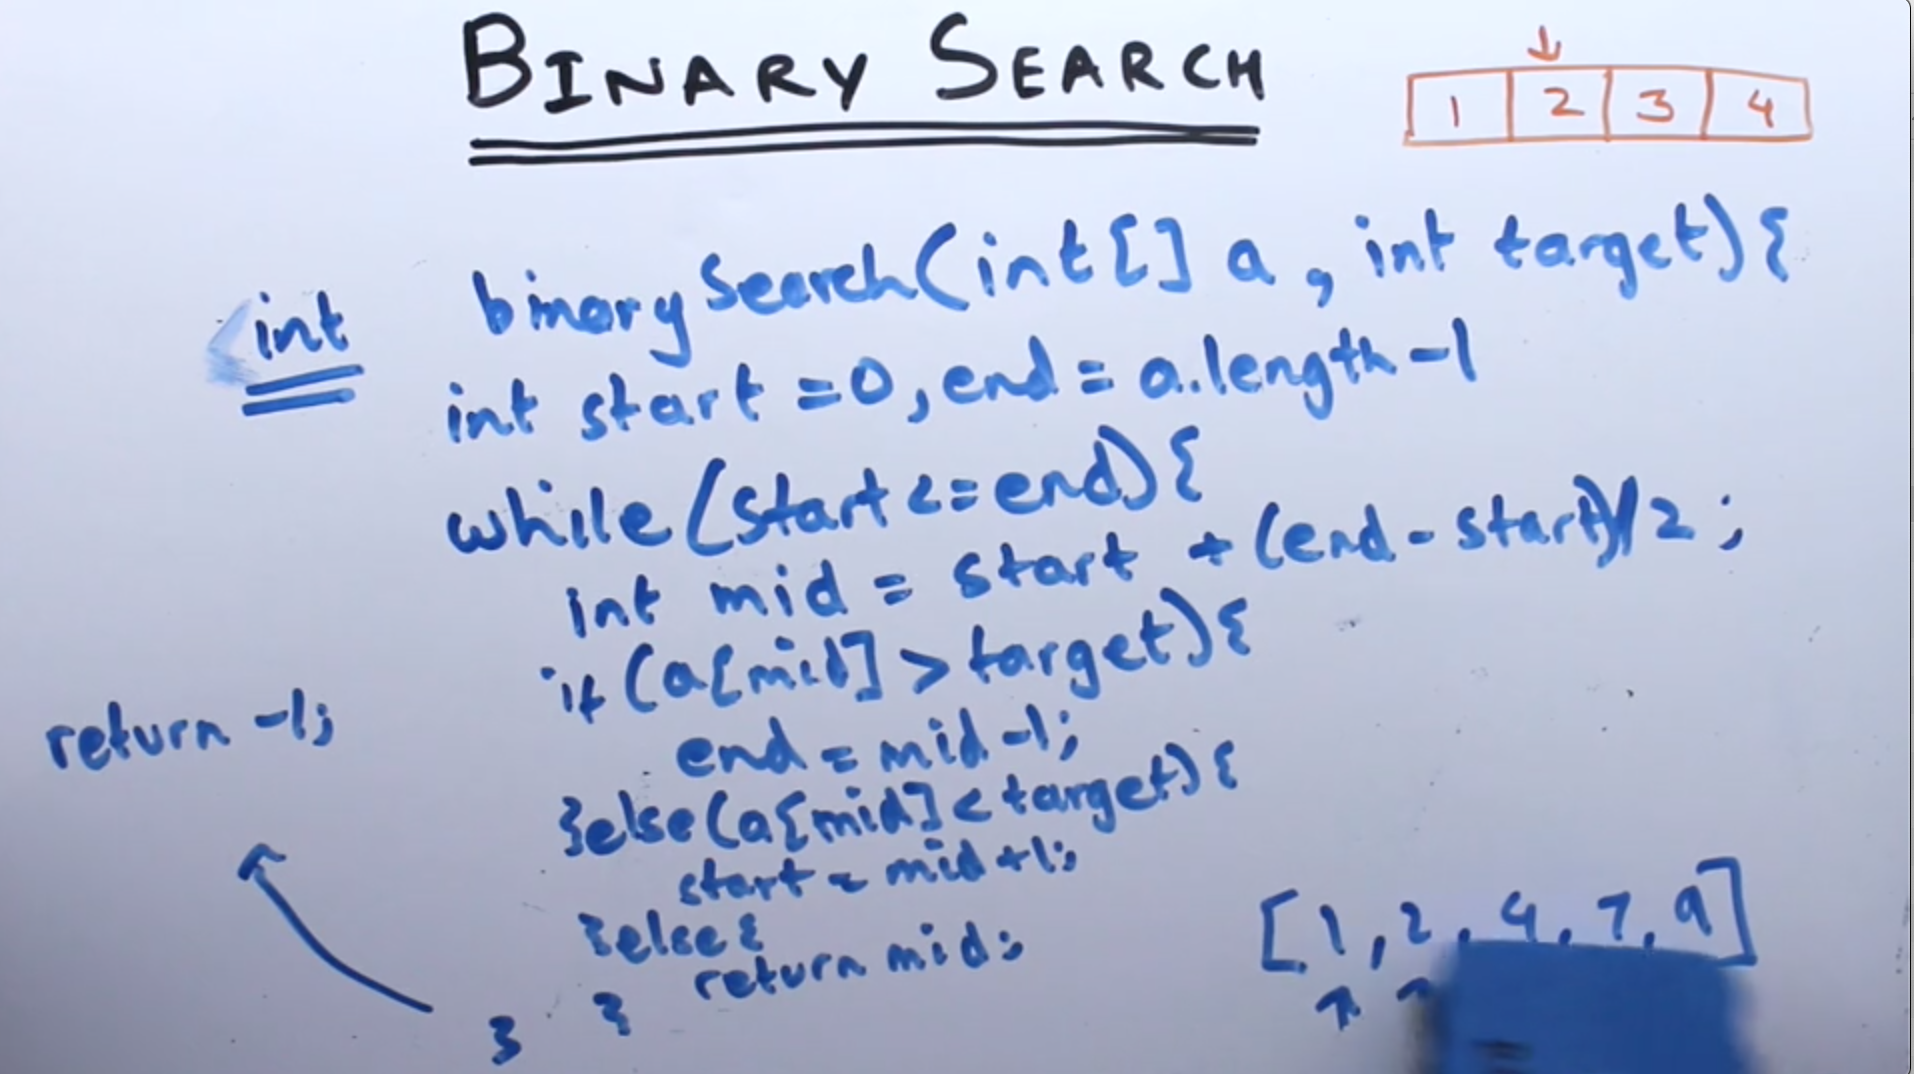 BINARY SEARCH
1 2 3 4
int binarySearch(int[] a, int target){
int start =0, end = a.length-1
while(start<=end){
int mid = start + (end-start)/2;
if(a[mid]>target){
end = mid-1;
}else(a[mid]<target){
start = mid+1;
}else{
return mid;
}
}
return -1;
[1, 2, 4, 7, 9]